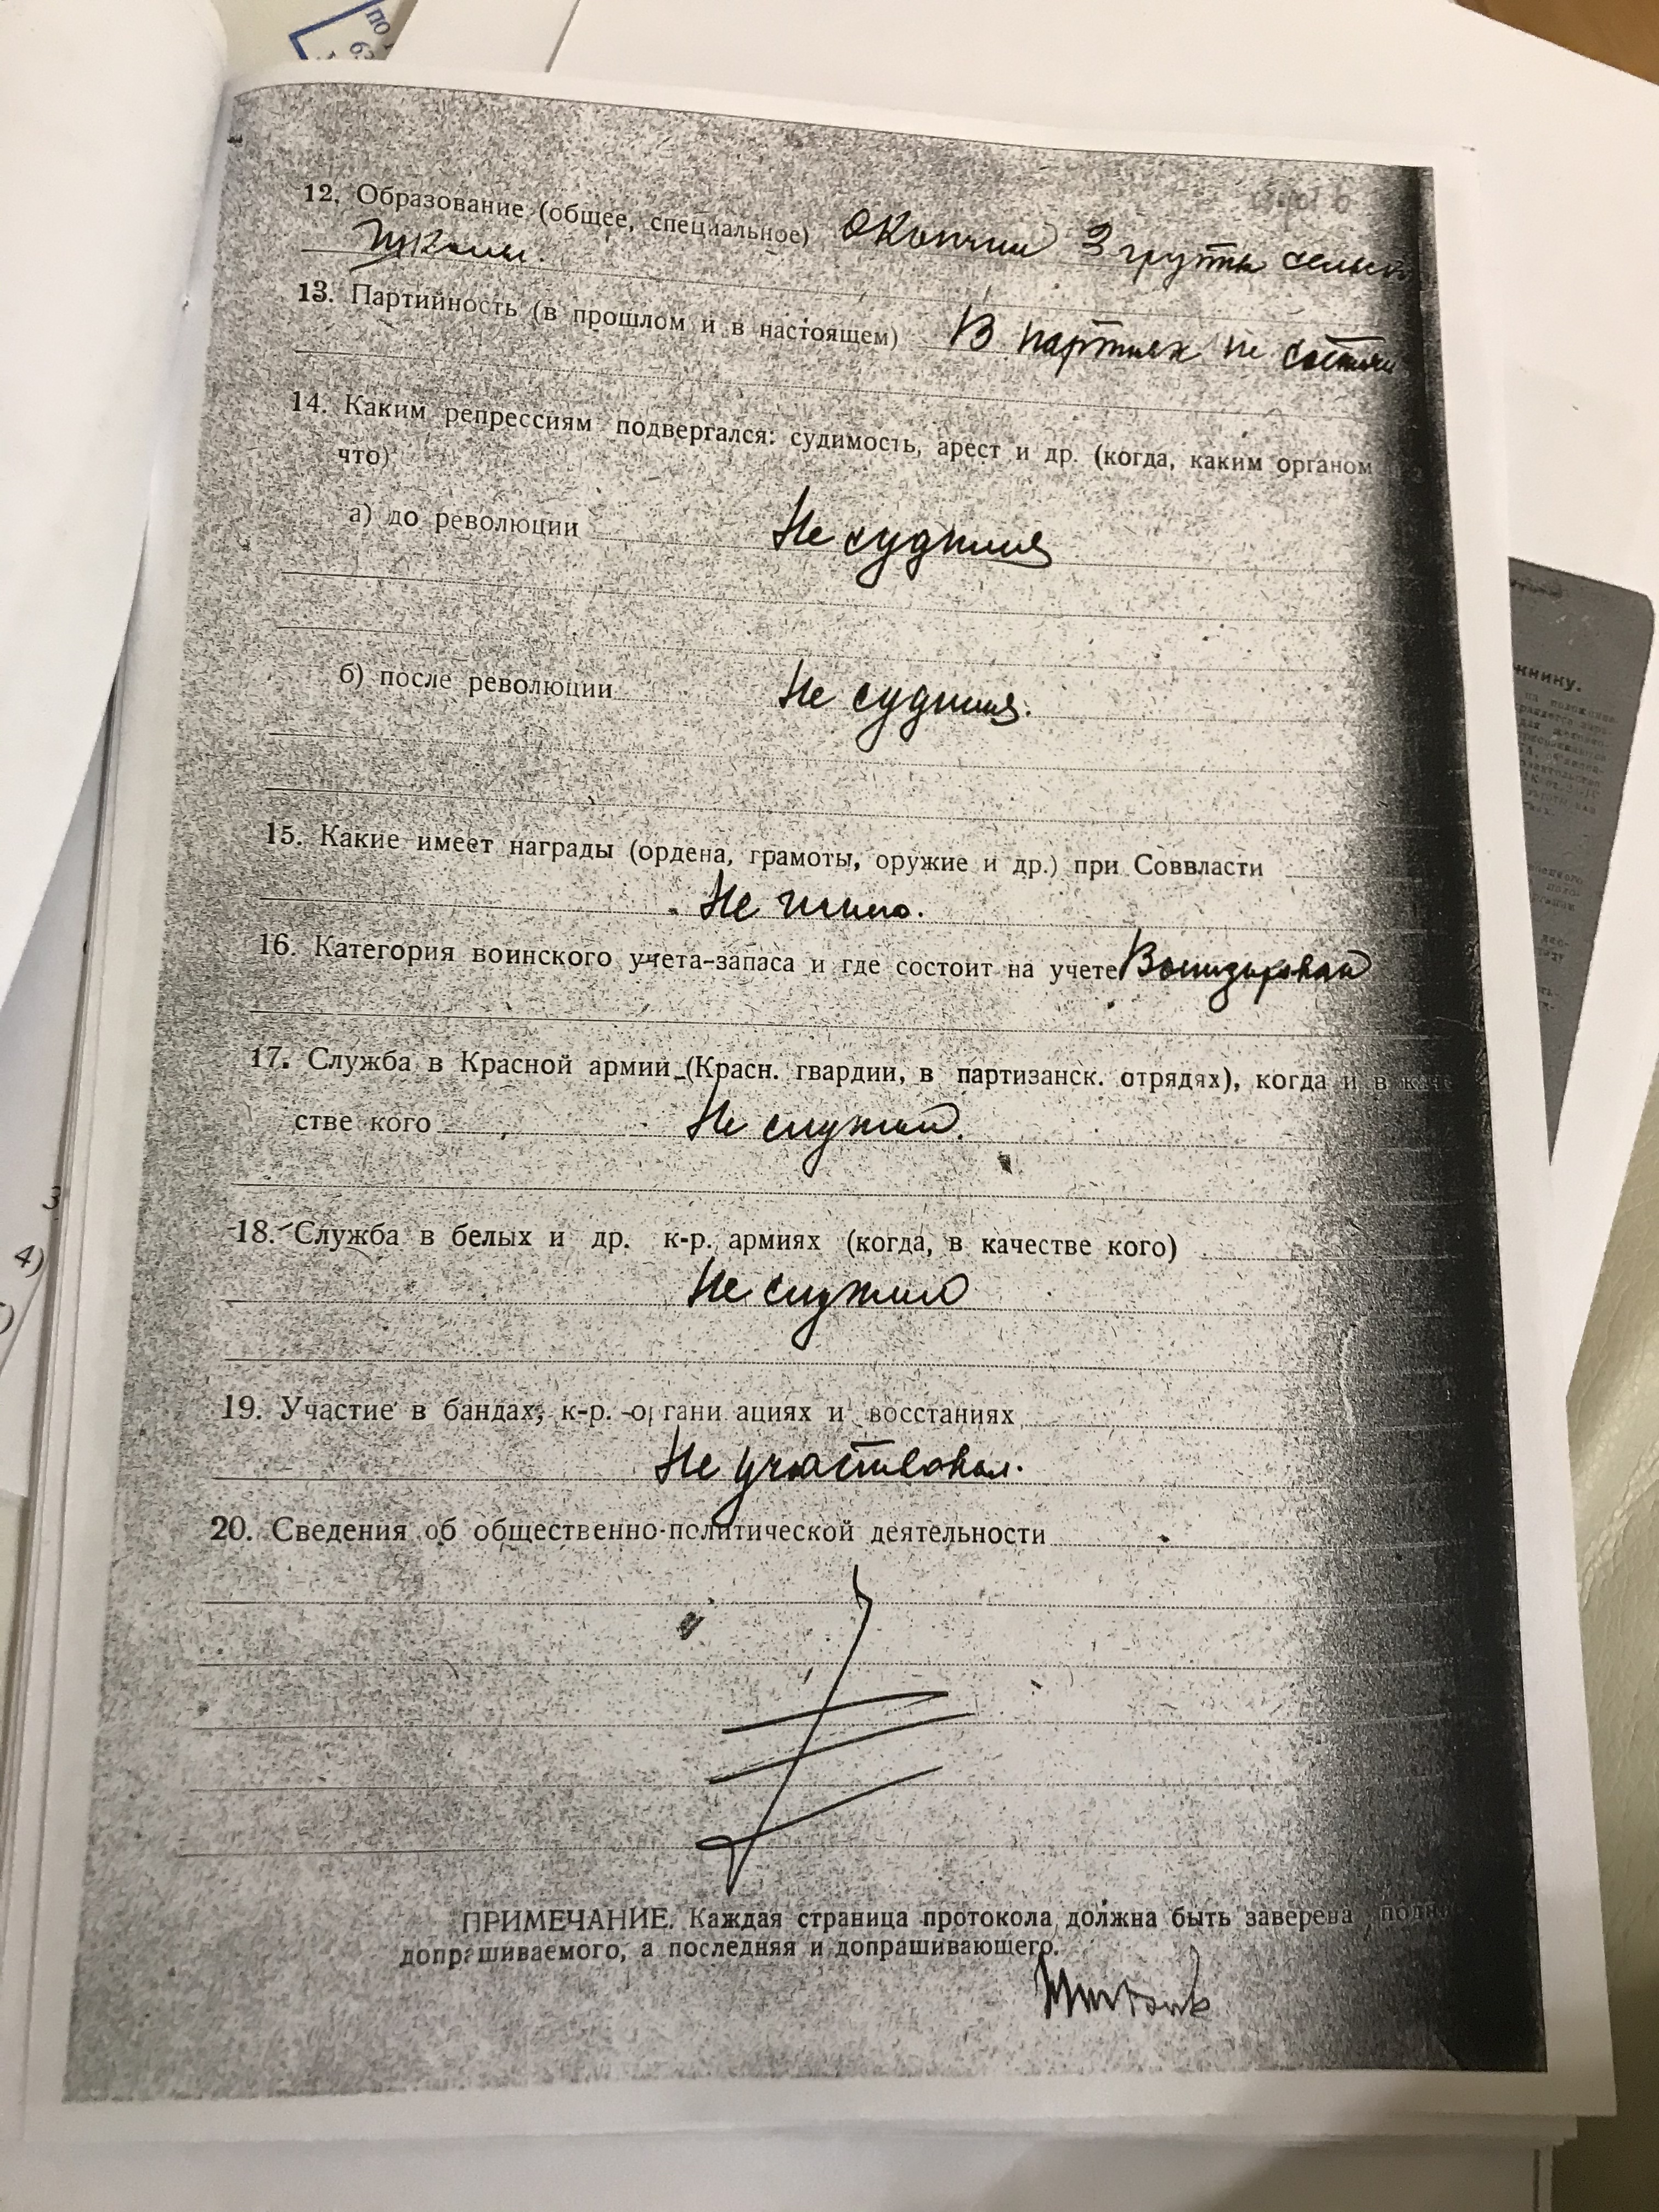 по
12. Образование (общее, специальное) Окончил 3 группы сельск
школы.
13. Партийность (в прошлом и в настоящем) В партиях не состоял
14. Каким репрессиям подвергался: судимость, арест и др. (когда, каким органом
что)
а) до революции Не судился
б) после революции Не судился.
15. Какие имеет награды (ордена, грамоты, оружие и др.) при Соввласти
Не имею.
16. Категория воинского учета-запаса и где состоит на учете
17. Служба в Красной армии (Красн. гвардии, в партизанск. отрядях), когда и в каче
стве кого Не служил.
18. Служба в белых и др. к-р. армиях (когда, в качестве кого)
Не служил
19. Участие в бандах, к-р. органи ациях и восстаниях
Не участвовал.
20. Сведения об общественно-политической деятельности
ПРИМЕЧАНИЕ. Каждая страница протокола должна быть заверена
допрашиваемого, а последняя и допрашивающего.
ннику.
3
4)